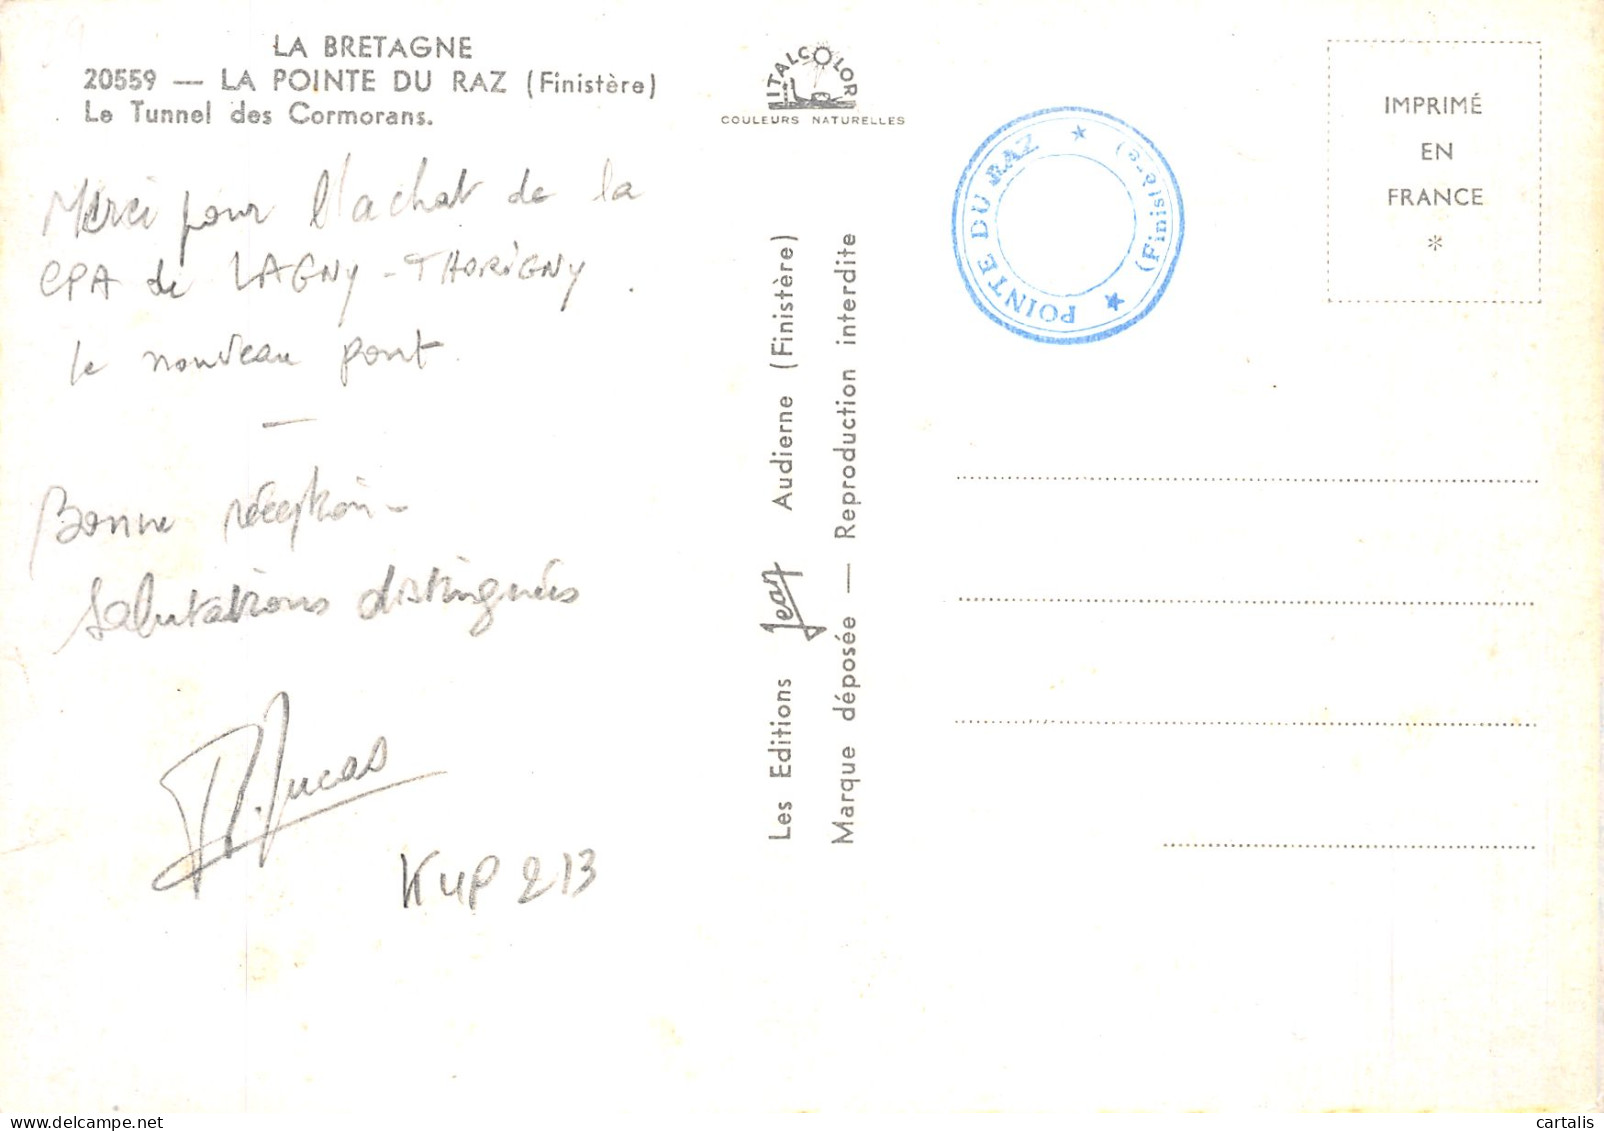 LA BRETAGNE
20559 — LA POINTE DU RAZ (Finistère)
Le Tunnel des Cormorans.
Merci pour l'achat de la
CPA de LAGNY-THORIGNY.
le nouveau pont.
—
Bonne réception-
Salutations distinguées
Lucas
KUP 213
ITALCOLOR
COULEURS NATURELLES
Les Editions Jean Audierne (Finistère)
Marque déposée — Reproduction interdite
POINTE DU RAZ ★ (Finistère) ★
IMPRIMÉ
EN
FRANCE
*
cartalis